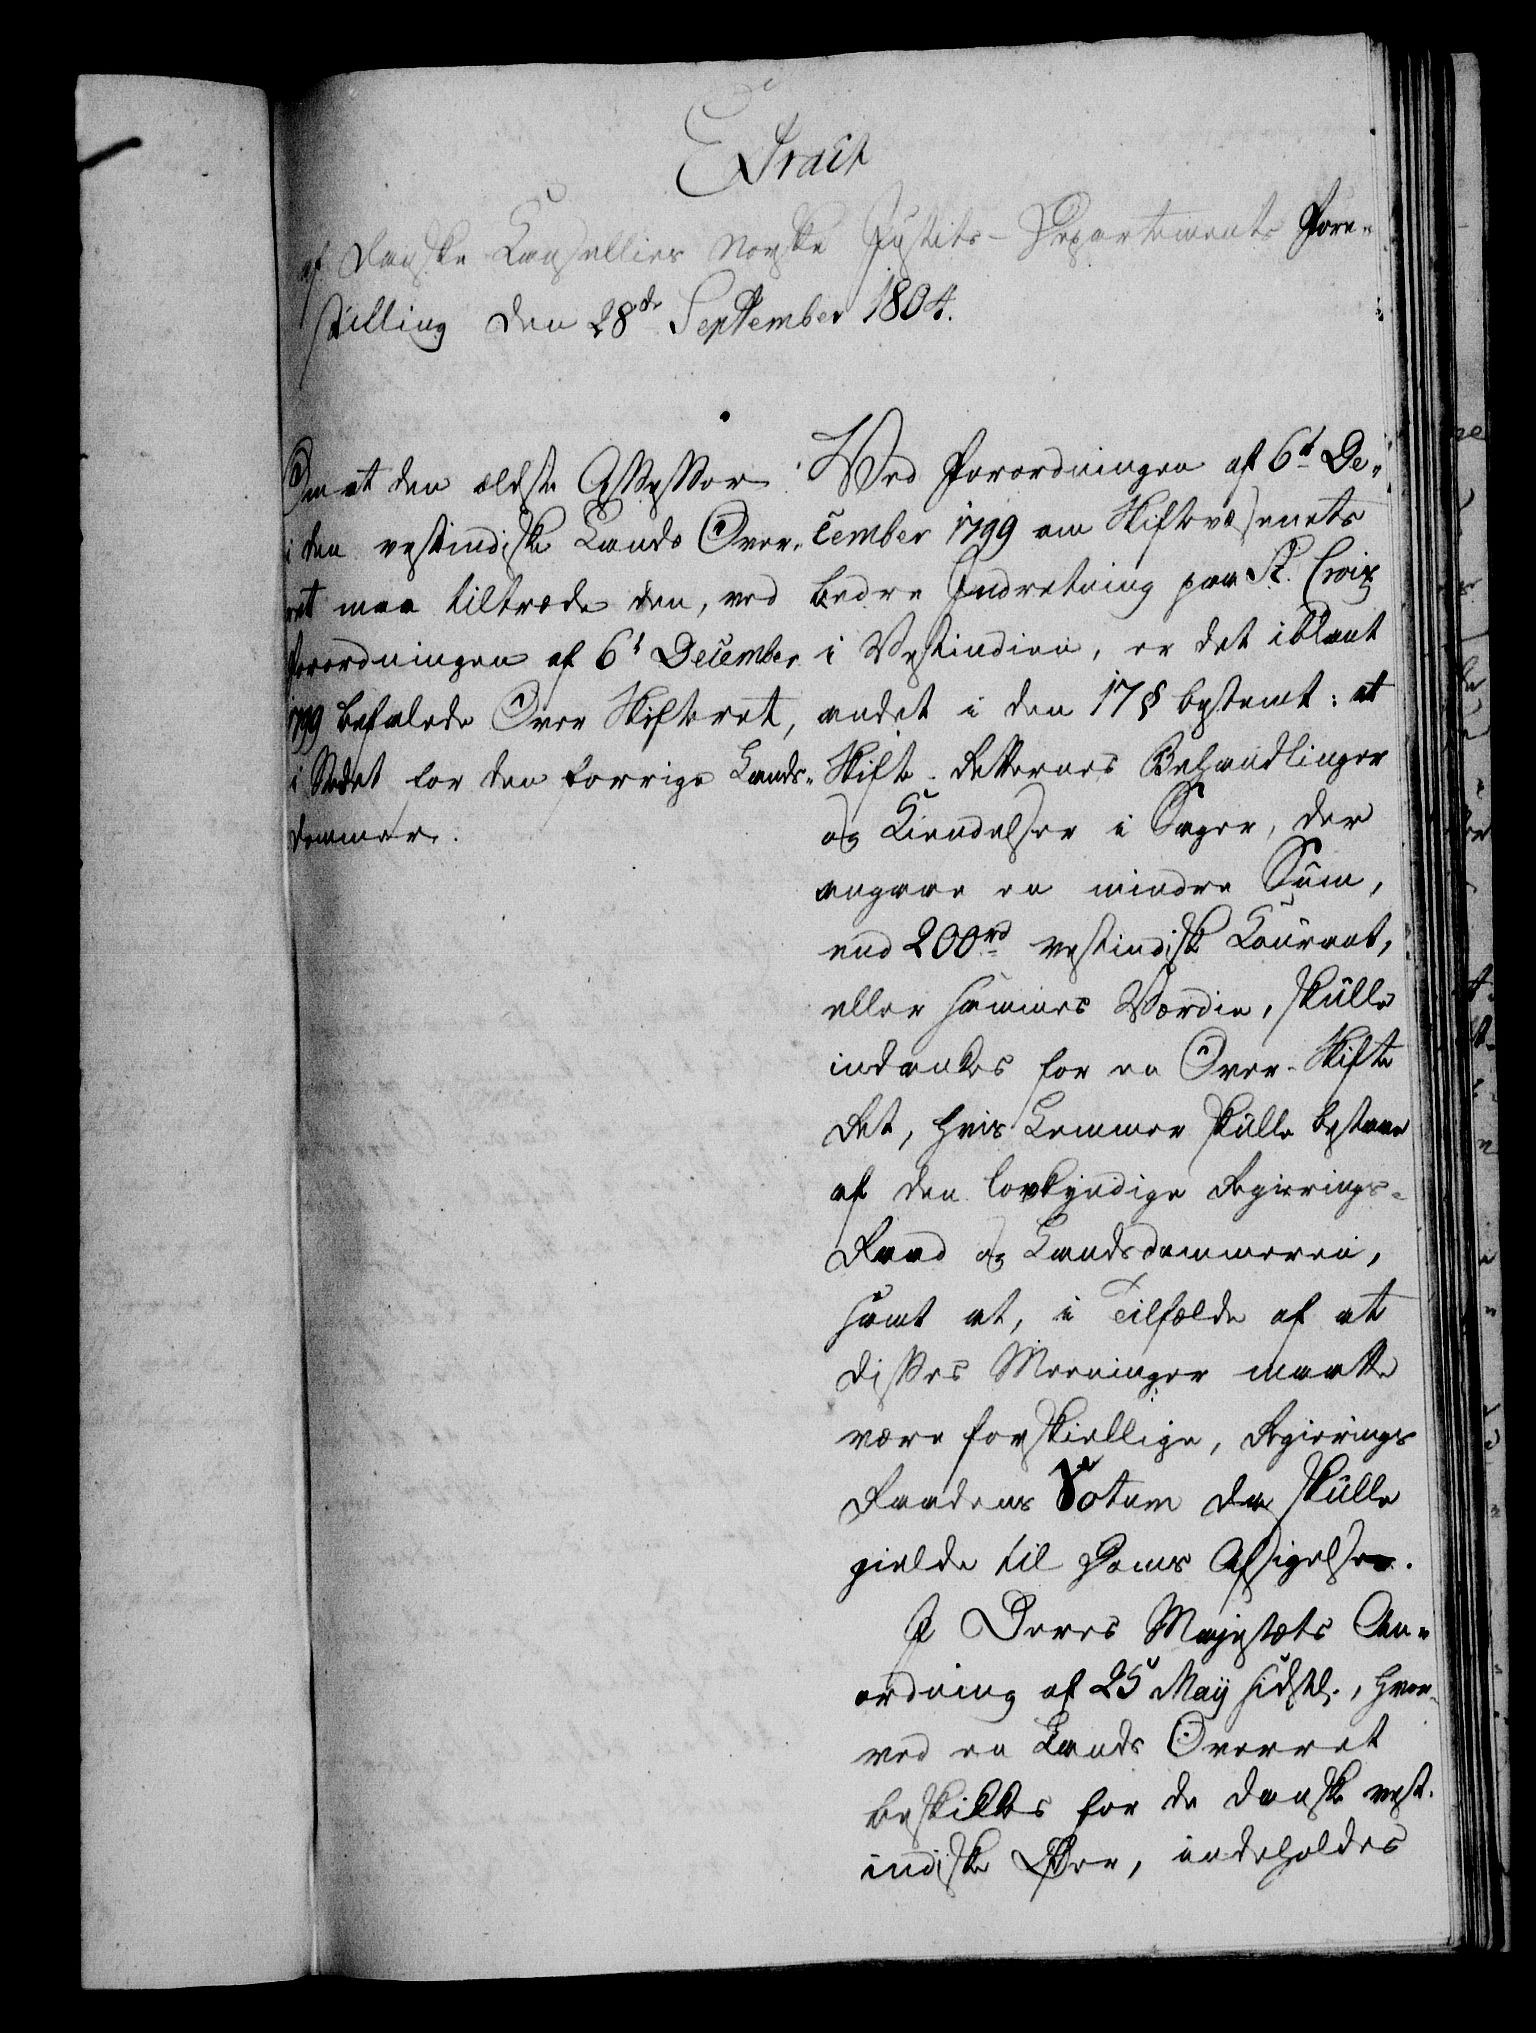 Extract
af Danske Cancellies Norske Justits-Departements Fore-
stilling den 28de September 1804.
Om at den ældste Assessor
i den vestindiske Lands Over-
ret maa tiltræde den, ved
Forordningen af 6t December
1799 befalede Over Skifteret,
i Stedet for den forrige Lands-
dommer.
Ved Forordningen af 6t De-
cember 1799 om Skiftevæsenets
bedre Indretning paa St. Croix
i Vestindien, er det iblant
andet i den 17§ bestemt: at
Skifte-Retternes Behandlinger
og Kiendelser i Sager, der
angaae en mindre Sum,
end 200rd vestindisk Courant,
eller sammes Værdie, skulle
indankes for en Over-Skifte
Ret, hvis Lemmer skulle bestaae
af den lovkyndige Regierings-
Raad og Landsdommeren,
samt at, i Tilfælde af at
disses Meeninger maatte
være forskiellige, Regierings
Raadens Votum da skulle
gielde til Doms Afsigelse.
I Deres Majestæts An-
ordning af 25 Maij sidstl., hvor-
ved en Lands Overret
beskikkes for de danske vest-
indiske Øer, indeholdes